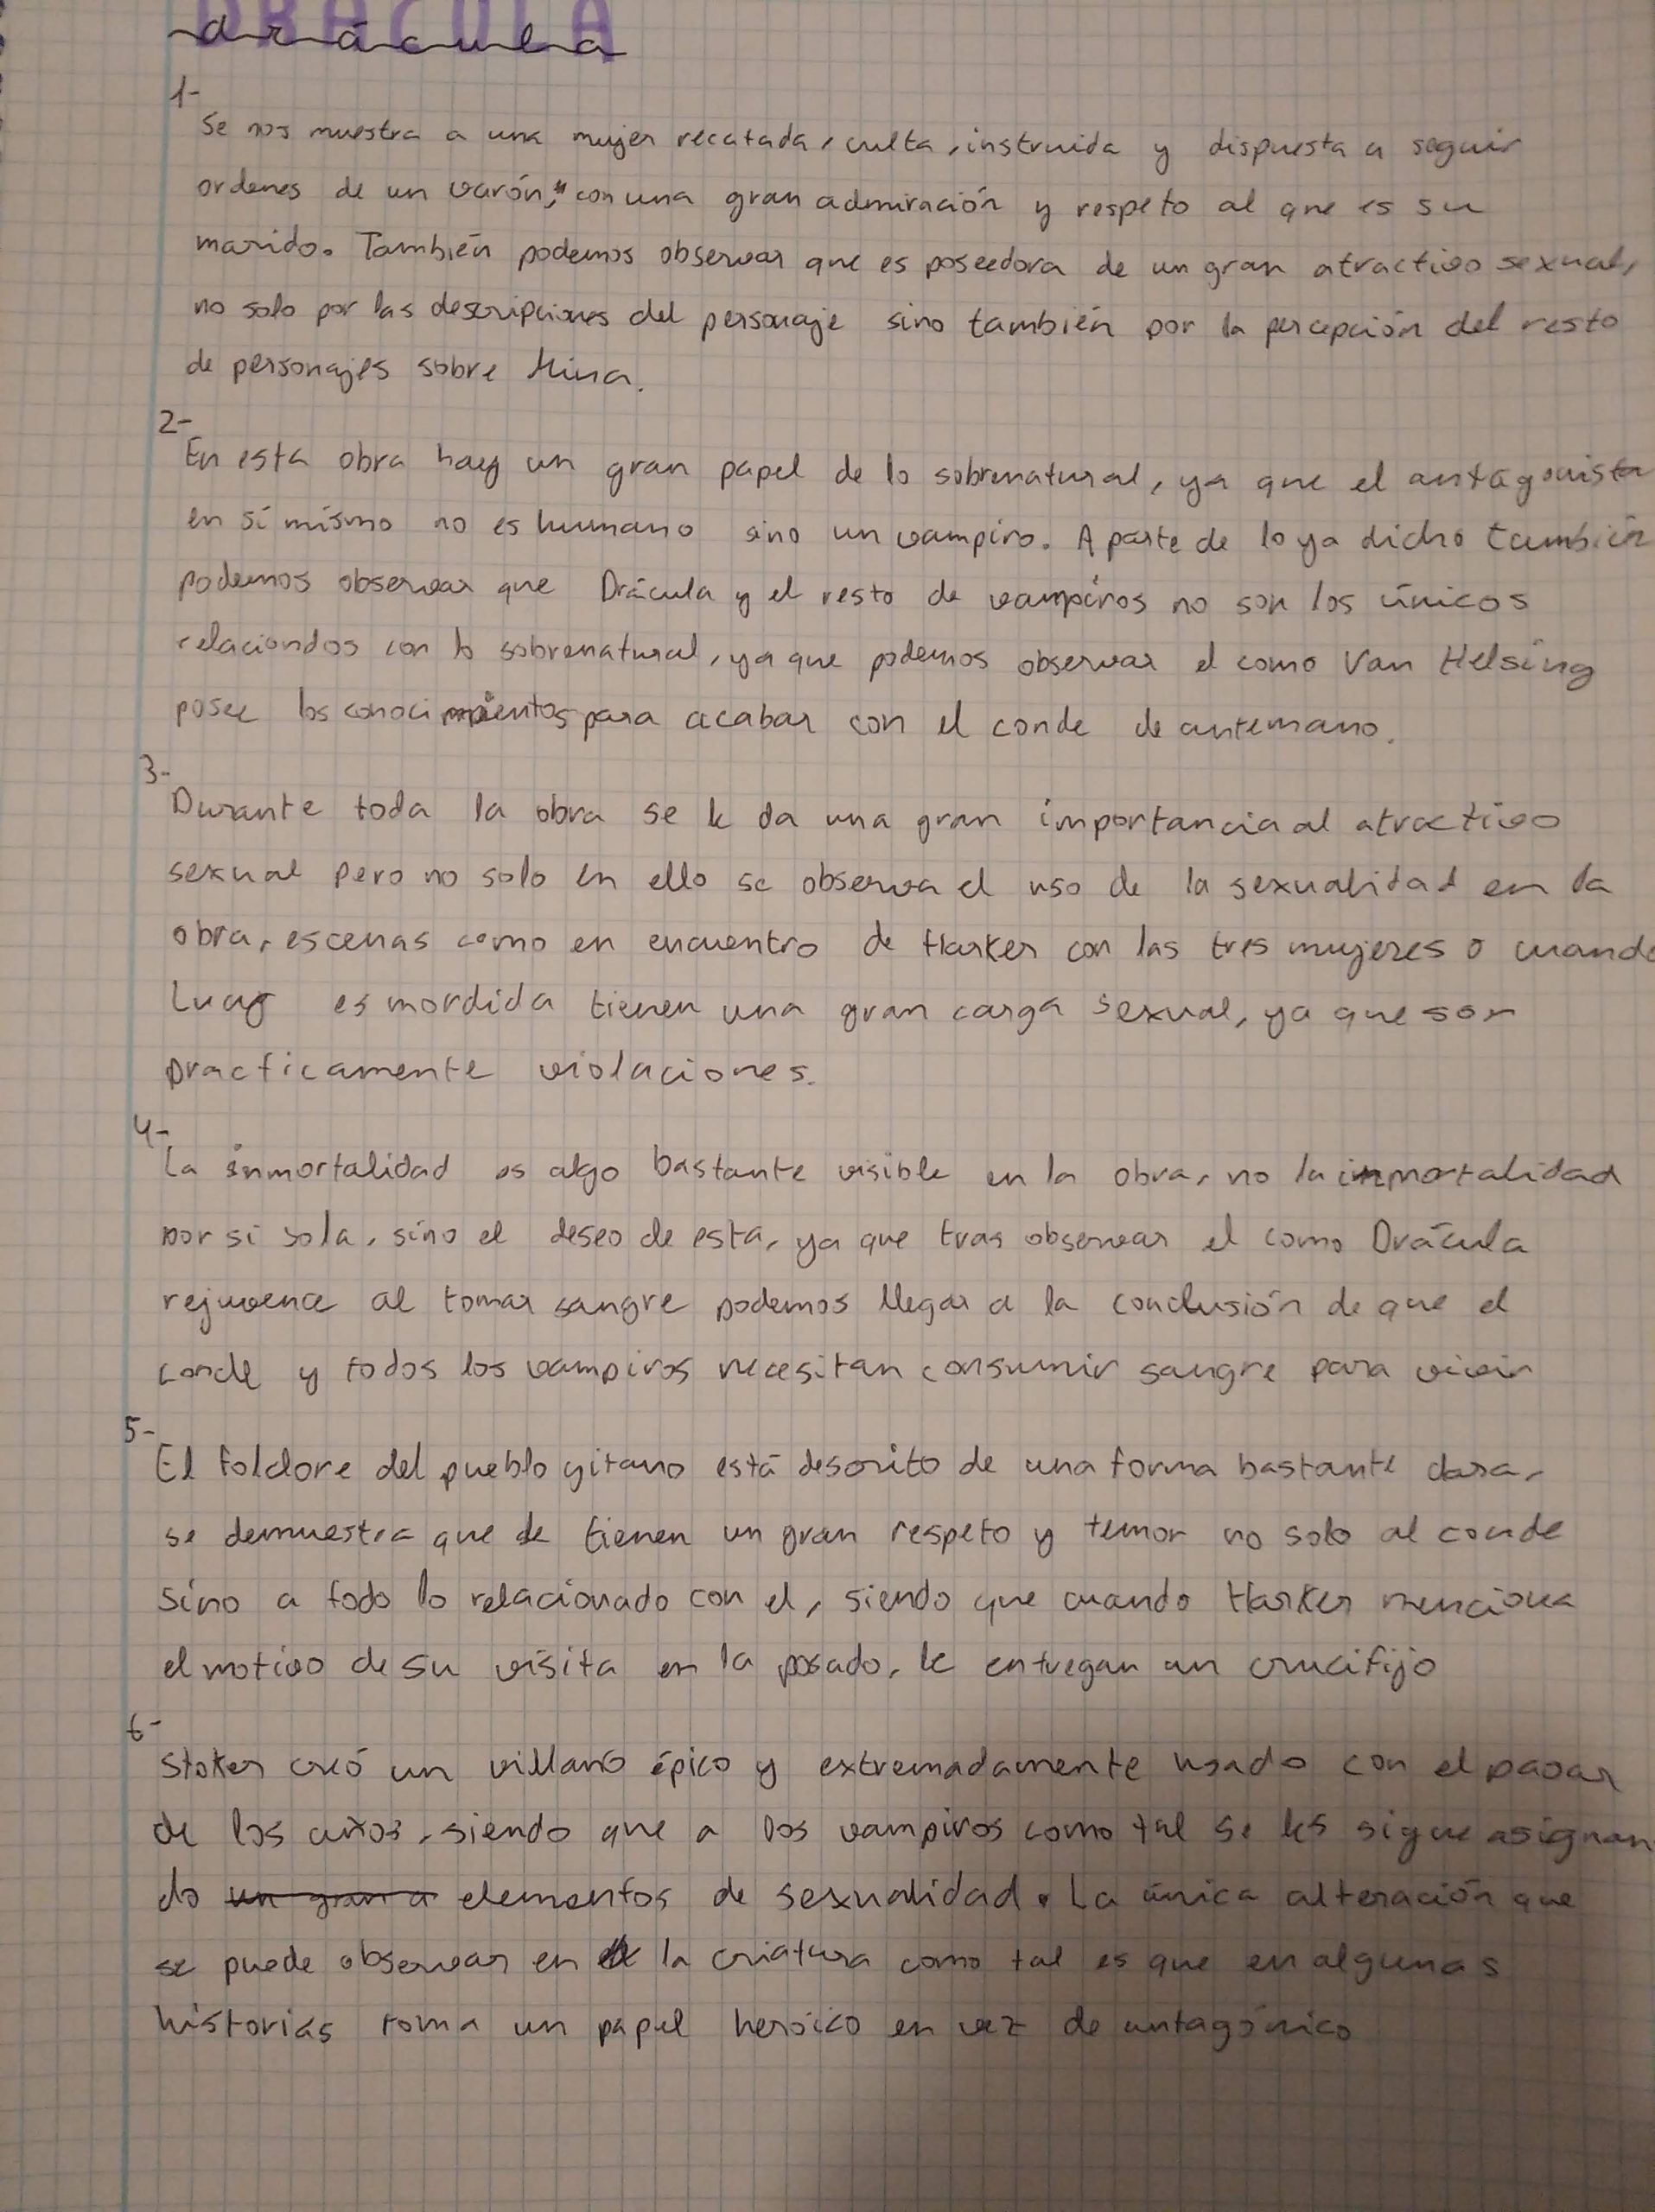 DRÁCULA
drácula
1-
Se nos muestra a una mujer recatada, culta, instruida y dispuesta a seguir
ordenes de un varón, con una gran admiración y respeto al que es su
marido. También podemos observar que es poseedora de un gran atractivo sexual,
no solo por las descripciones del personaje sino también por la percepción del resto
de personajes sobre Mina.
2-
En esta obra hay un gran papel de lo sobrenatural, ya que el antagonista
en sí mísmo no es humano sino un vampiro. A parte de lo ya dicho también
podemos observar que Drácula y el resto de vampiros no son los únicos
relaciondos con lo sobrenatural, ya que podemos observar el como Van Helsing
posee los conocimientos para acabar con el conde de antemano.
3-
Durante toda la obra se le da una gran importancia al atractivo
sexual pero no solo en ello se observa el uso de la sexualidad en la
obra, escenas como en encuentro de Harker con las tres mujeres o cuando
Lucy es mordida tienen una gran carga sexual, ya que son
practicamente violaciones.
4-
La inmortalidad es algo bastante visible en la obra, no la inmortalidad
por si sola, sino el deseo de esta, ya que tras observar el como Drácula
rejuvence al tomar sangre podemos llegar a la conclusión de que el
conde y todos los vampiros necesitan consumir sangre para vivir
5-
El folclore del pueblo gitano está descrito de una forma bastante clara,
se demuestra que le tienen un gran respeto y temor no solo al conde
sino a todo lo relacionado con el, siendo que cuando Harker menciona
el motivo de su visita en la posado, le entregan un crucifijo
6-
Stoker creó un villano épico y extremadamente usado con el pasar
de los años, siendo que a los vampiros como tal se les sigue asignan
do un gran a elementos de sexualidad. La única alteración que
se puede observar en la criatura como tal es que en algunas
historias toma un papel heróico en vez de antagónico